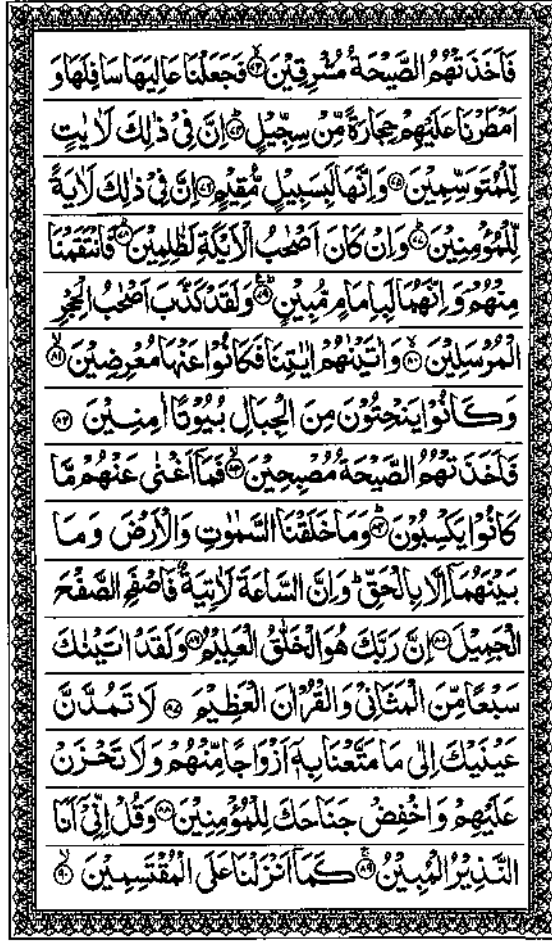 فَاَخَذَتْهُمُ الصَّيْحَةُ مُشْرِقِيْنَ ﴿۷۳﴾ۙ فَجَعَلْنَا عَالِيَهَا سَافِلَهَا وَ
اَمْطَرْنَا عَلَيْهِمْ حِجَارَةً مِّنْ سِجِّيْلٍ ﴿۷۴﴾ؕ اِنَّ فِىْ ذٰلِكَ لَاٰيٰتٍ
لِّلْمُتَوَسِّمِيْنَ ﴿۷۵﴾ وَاِنَّهَا لَبِسَبِيْلٍ مُّقِيْمٍ ﴿۷۶﴾ اِنَّ فِىْ ذٰلِكَ لَاٰيَةً
لِّلْمُؤْمِنِيْنَ ﴿۷۷﴾ؕ وَاِنْ كَانَ اَصْحٰبُ الْاَيْكَةِ لَظٰلِمِيْنَ ﴿۷۸﴾ۙ فَانْتَقَمْنَا
مِنْهُمْ وَاِنَّهُمَا لَبِاِمَامٍ مُّبِيْنٍ ﴿۷۹﴾ؕ وَلَقَدْ كَذَّبَ اَصْحٰبُ الْحِجْرِ
الْمُرْسَلِيْنَ ﴿۸۰﴾ۙ وَاٰتَيْنٰهُمْ اٰيٰتِنَا فَكَانُوْا عَنْهَا مُعْرِضِيْنَ ﴿۸۱﴾ۙ
وَكَانُوْا يَنْحِتُوْنَ مِنَ الْجِبَالِ بُيُوْتًا اٰمِنِيْنَ ﴿۸۲﴾
فَاَخَذَتْهُمُ الصَّيْحَةُ مُصْبِحِيْنَ ﴿۸۳﴾ۙ فَمَاۤ اَغْنٰى عَنْهُمْ مَّا
كَانُوْا يَكْسِبُوْنَ ﴿۸۴﴾ؕ وَمَا خَلَقْنَا السَّمٰوٰتِ وَالْاَرْضَ وَمَا
بَيْنَهُمَاۤ اِلَّا بِالْحَقِّ ؕ وَاِنَّ السَّاعَةَ لَاٰتِيَةٌ فَاصْفَحِ الصَّفْحَ
الْجَمِيْلَ ﴿۸۵﴾ اِنَّ رَبَّكَ هُوَ الْخَلّٰقُ الْعَلِيْمُ ﴿۸۶﴾ وَلَقَدْ اٰتَيْنٰكَ
سَبْعًا مِّنَ الْمَثَانِىْ وَالْقُرْاٰنَ الْعَظِيْمَ ﴿۸۷﴾ لَا تَمُدَّنَّ
عَيْنَيْكَ اِلٰى مَا مَتَّعْنَا بِهٖۤ اَزْوَاجًا مِّنْهُمْ وَلَا تَحْزَنْ
عَلَيْهِمْ وَاخْفِضْ جَنَاحَكَ لِلْمُؤْمِنِيْنَ ﴿۸۸﴾ وَقُلْ اِنِّىْۤ اَنَا
النَّذِيْرُ الْمُبِيْنُ ﴿۸۹﴾ۚ كَمَاۤ اَنْزَلْنَا عَلَى الْمُقْتَسِمِيْنَ ﴿۹۰﴾ۙ